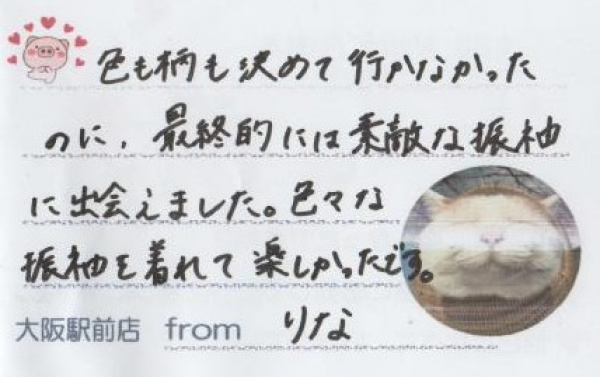 色も柄も決めて行かなかった
のに、最終的には素敵な振袖
に出会えました。色々な
振袖を着れて楽しかったです。
大阪駅前店 from りな